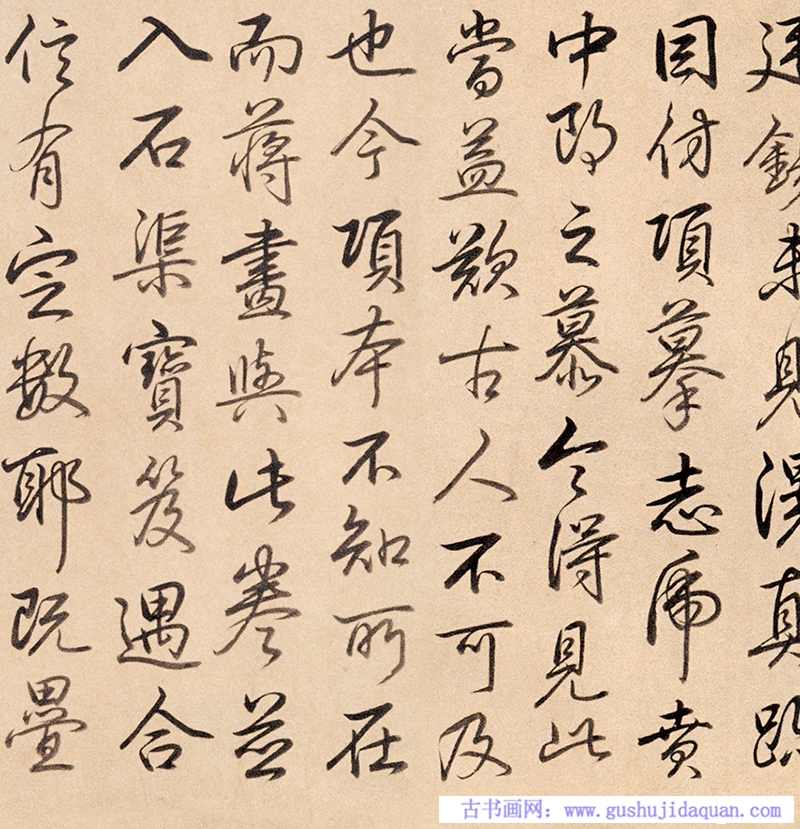 廷錫未見滉真跡
因仿項摹志虎賁
中郎之慕今得見此
當益歎古人不可及
也今項本不知所在
而蔣畫與此卷並
入石渠寶笈遇合
信有定數耶既疊
古书画网：www.gushujidaquan.com